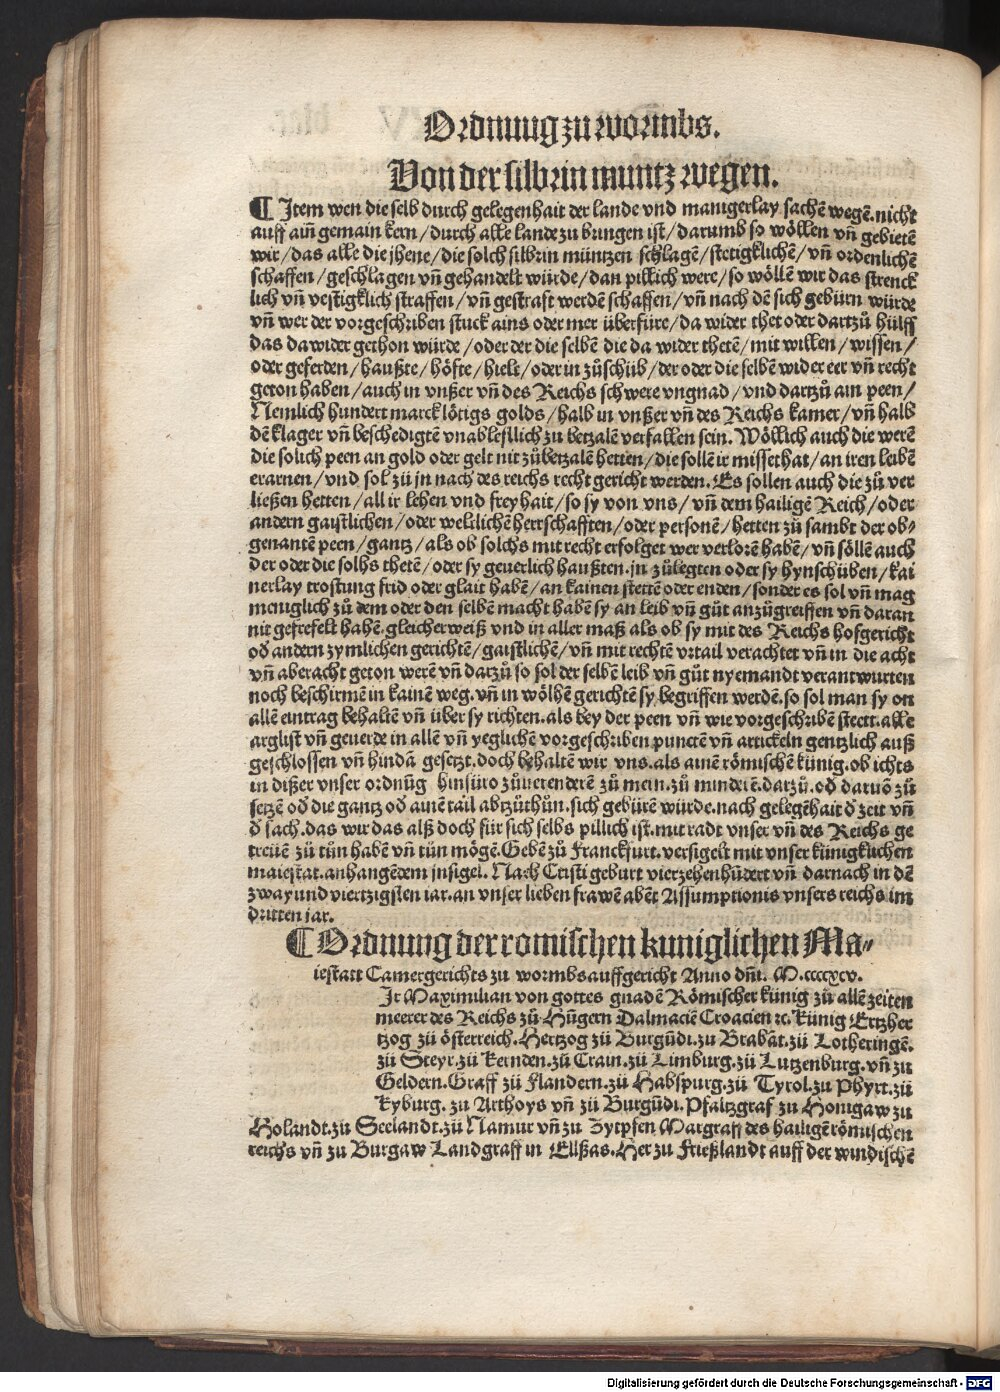 Ordnung zu wormbs.
Von der silbrin muntz wegen.
¶ Item wen die selb durch gelegenhait der lande vnd manigerlay sachē wegē. nicht
auff ain gemain kern / durch alle lande zu bringen ist / darumb so wöllen vn̄ gebietē
wir / das alle die jhene / die solch silbrin müntzen schlagē / stetigklichē / vn̄ ordenlichē
schaffen / geschlagen vn̄ gehandelt würde / dan pillich were / so wöllē wir das strenck
lich vn̄ vestigklich straffen / vn̄ gestraft werdē schaffen / vn̄ nach dē sich gebürn würde
vn̄ wer der vorgeschriben stuck ains oder mer überfüre / da wider thet oder dartzů hülff
das da wider gethon würde / oder der die selbē die da wider thetē / mit willen / wissen /
oder geferden / haußte / höfte / hielt / oder in zůschüb / der oder die selbē wider eer vn̄ recht
geton haben / auch in vnßer vn̄ des Reichs schwere vngnad / vnd dartzů ain peen /
Nemlich hundert marck lötigs golds / halb in vnßer vn̄ des Reichs kamer / vn̄ halb
dē klager vn̄ beschedigtē vnableßlich zu betzalē verfallen sein. Wöllich auch die werē
die solich peen an gold oder gelt nit zůbetzalē hetten / die sollē ir missethat / an iren leibē
erarnen / vnd sol zů jn nach des reichs recht gericht werden. Es sollen auch die zů ver
ließen hetten / all ir lehen vnd freyhait / so sy von vns / vn̄ dem hailigē Reich / oder
andern gaistlichen / oder weltlichē herrschafften / oder personē / hetten zů sambt der ob⸗
genantē peen / gantz / als ob solchs mit recht erfolget wer verlorē habē / vn̄ söllē auch
der oder die solhs thetē / oder sy geuerlich haußten. jn zůlegten oder sy hynschüben / kai
nerlay trostung frid oder glait habē / an kainen stettē oder enden / sonder es sol vn̄ mag
meniglich zů dem oder den selbē macht habē sy an leib vn̄ gůt anzůgreiffen vn̄ daran
nit gefrefelt habē. gleicherweiß vnd in aller maß als ob sy mit des Reichs hofgericht
od̄ andern zymlichen gerichtē / gaistlichē / vn̄ mit rechtē vrtail verachtet vn̄ in die acht
vn̄ aberacht geton werē vn̄ darzů so sol der selbē leib vn̄ gůt nyemandt verantwurten
noch beschirmē in kainē weg. vn̄ in wölhē gerichtē sy begriffen werdē. so sol man sy on
allē eintrag behaltē vn̄ über sy richten. als bey der peen vn̄ wie vorgeschribē steett. alle
arglist vn̄ geuerde in allē vn̄ yeglichē vorgeschriben punctē vn̄ artickeln gentzlich auß
geschlossen vn̄ hindā gesetzt. doch behaltē wir vns. als ainē römischē künig. ob ichts
in dißer vnser ordnūg hinfüro zůuerenderē zů mern. zů minderē. darzů. od̄ daruō zů
setzē od̄ die gantz od̄ ainē tail abtzůthůn. sich gebürē würde. nach gelegēhait d̄ zeit vn̄
d̄ sach. das wir das alß doch für sich selbs pillich ist. mit radt vnser vn̄ des Reichs ge
treuē zů tůn haben vn̄ tůn mögē. Gebē zů Franckfurt. versigelt mit vnser künigklichen
maiestat. anhangēdem jnsigel. Nach Cristi geburt vierzehenhūdert vn̄ darnach in dē
zway und viertzigsten iar. an vnser lieben frawē abēt Assumptionis vnsers reichs im
dritten jar.
¶ Ordnung der romischen kuniglichen Ma⸗
iestatt Camergerichts zu wormbs auffgericht Anno dn̄i. M.ccccxcv.
Ir Maximilian von gottes gnadē Römischer künig zů allē zeiten
meerer des Reichs zů Hūgern Dalmaciē Croacien ꝛc. künig Ertzher
tzog zů österreich. Hertzog zů Burgūdi. zu Brabāt. zů Lotheringē.
zů Steyr. zů Kernden. zů Crain. zů Limburg. zů Lutzenburg. vn̄ zu
Geldern. Graff zů Flandern. zů Habspurg. zů Tyrol. zu Phyrt. zů
Kyburg. zu Arthoys vn̄ zů Burgūdi. Pfaltzgraf zu Honigaw zu
Holandt. zu Seelandt. zů Namur vn̄ zu Zytpfen Margraff des hailigē römischen
reichs vn̄ zu Burgaw Landgraff in Ellßas. Her zu Frießlandt auff der windischē
Digitalisierung gefördert durch die Deutsche Forschungsgemeinschaft - DFG